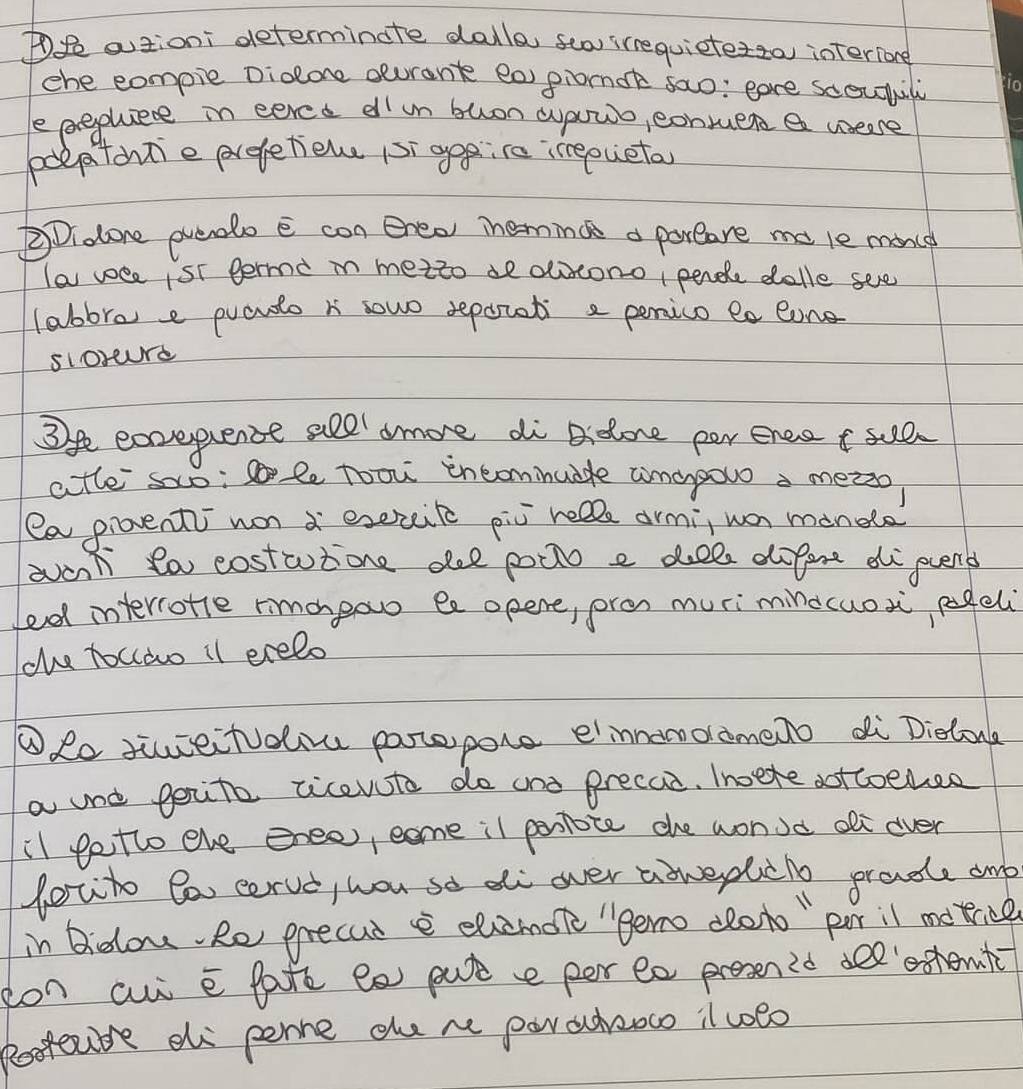 ① Le azioni determinate dalla sua irrequietezza interiore
che compie Didone durante la giornata sono: fare sacrifici
e preghiere in cerca d'un buon auspicio, consulta le viscere
palpitanti e profetiche, si aggira irrequieta
② Didone quando è con Enea incomincia a parlare ma le manca
la voce, si ferma in mezzo al discorso, pende dalle sue
labbra e quando si sono separati e persino la luna
si oscura
③ Le conseguenze dell'amore di Didone per Enea sulla
città sono: le torri incominciate rimangono a mezzo,
la gioventù non si esercita più nelle armi, non manda
avanti la costruzione del porto e delle difese di guerra
ed interrotte rimangono le opere, gran muri minacciosi,
che toccano il cielo
④ La similitudine paragona l'innamoramento di Didone
a una ferita ricevuta da una freccia. Inoltre sottolinea
il fatto che Enea, come il pastore che non sa di aver
ferito la cerva, non sa di aver risvegliato grande amo
in Didone. La freccia è chiamata "ferro alato" per il materiale
con cui è fatta la punta e per la presenza all'estremità
posteriore di penne che ne il volo